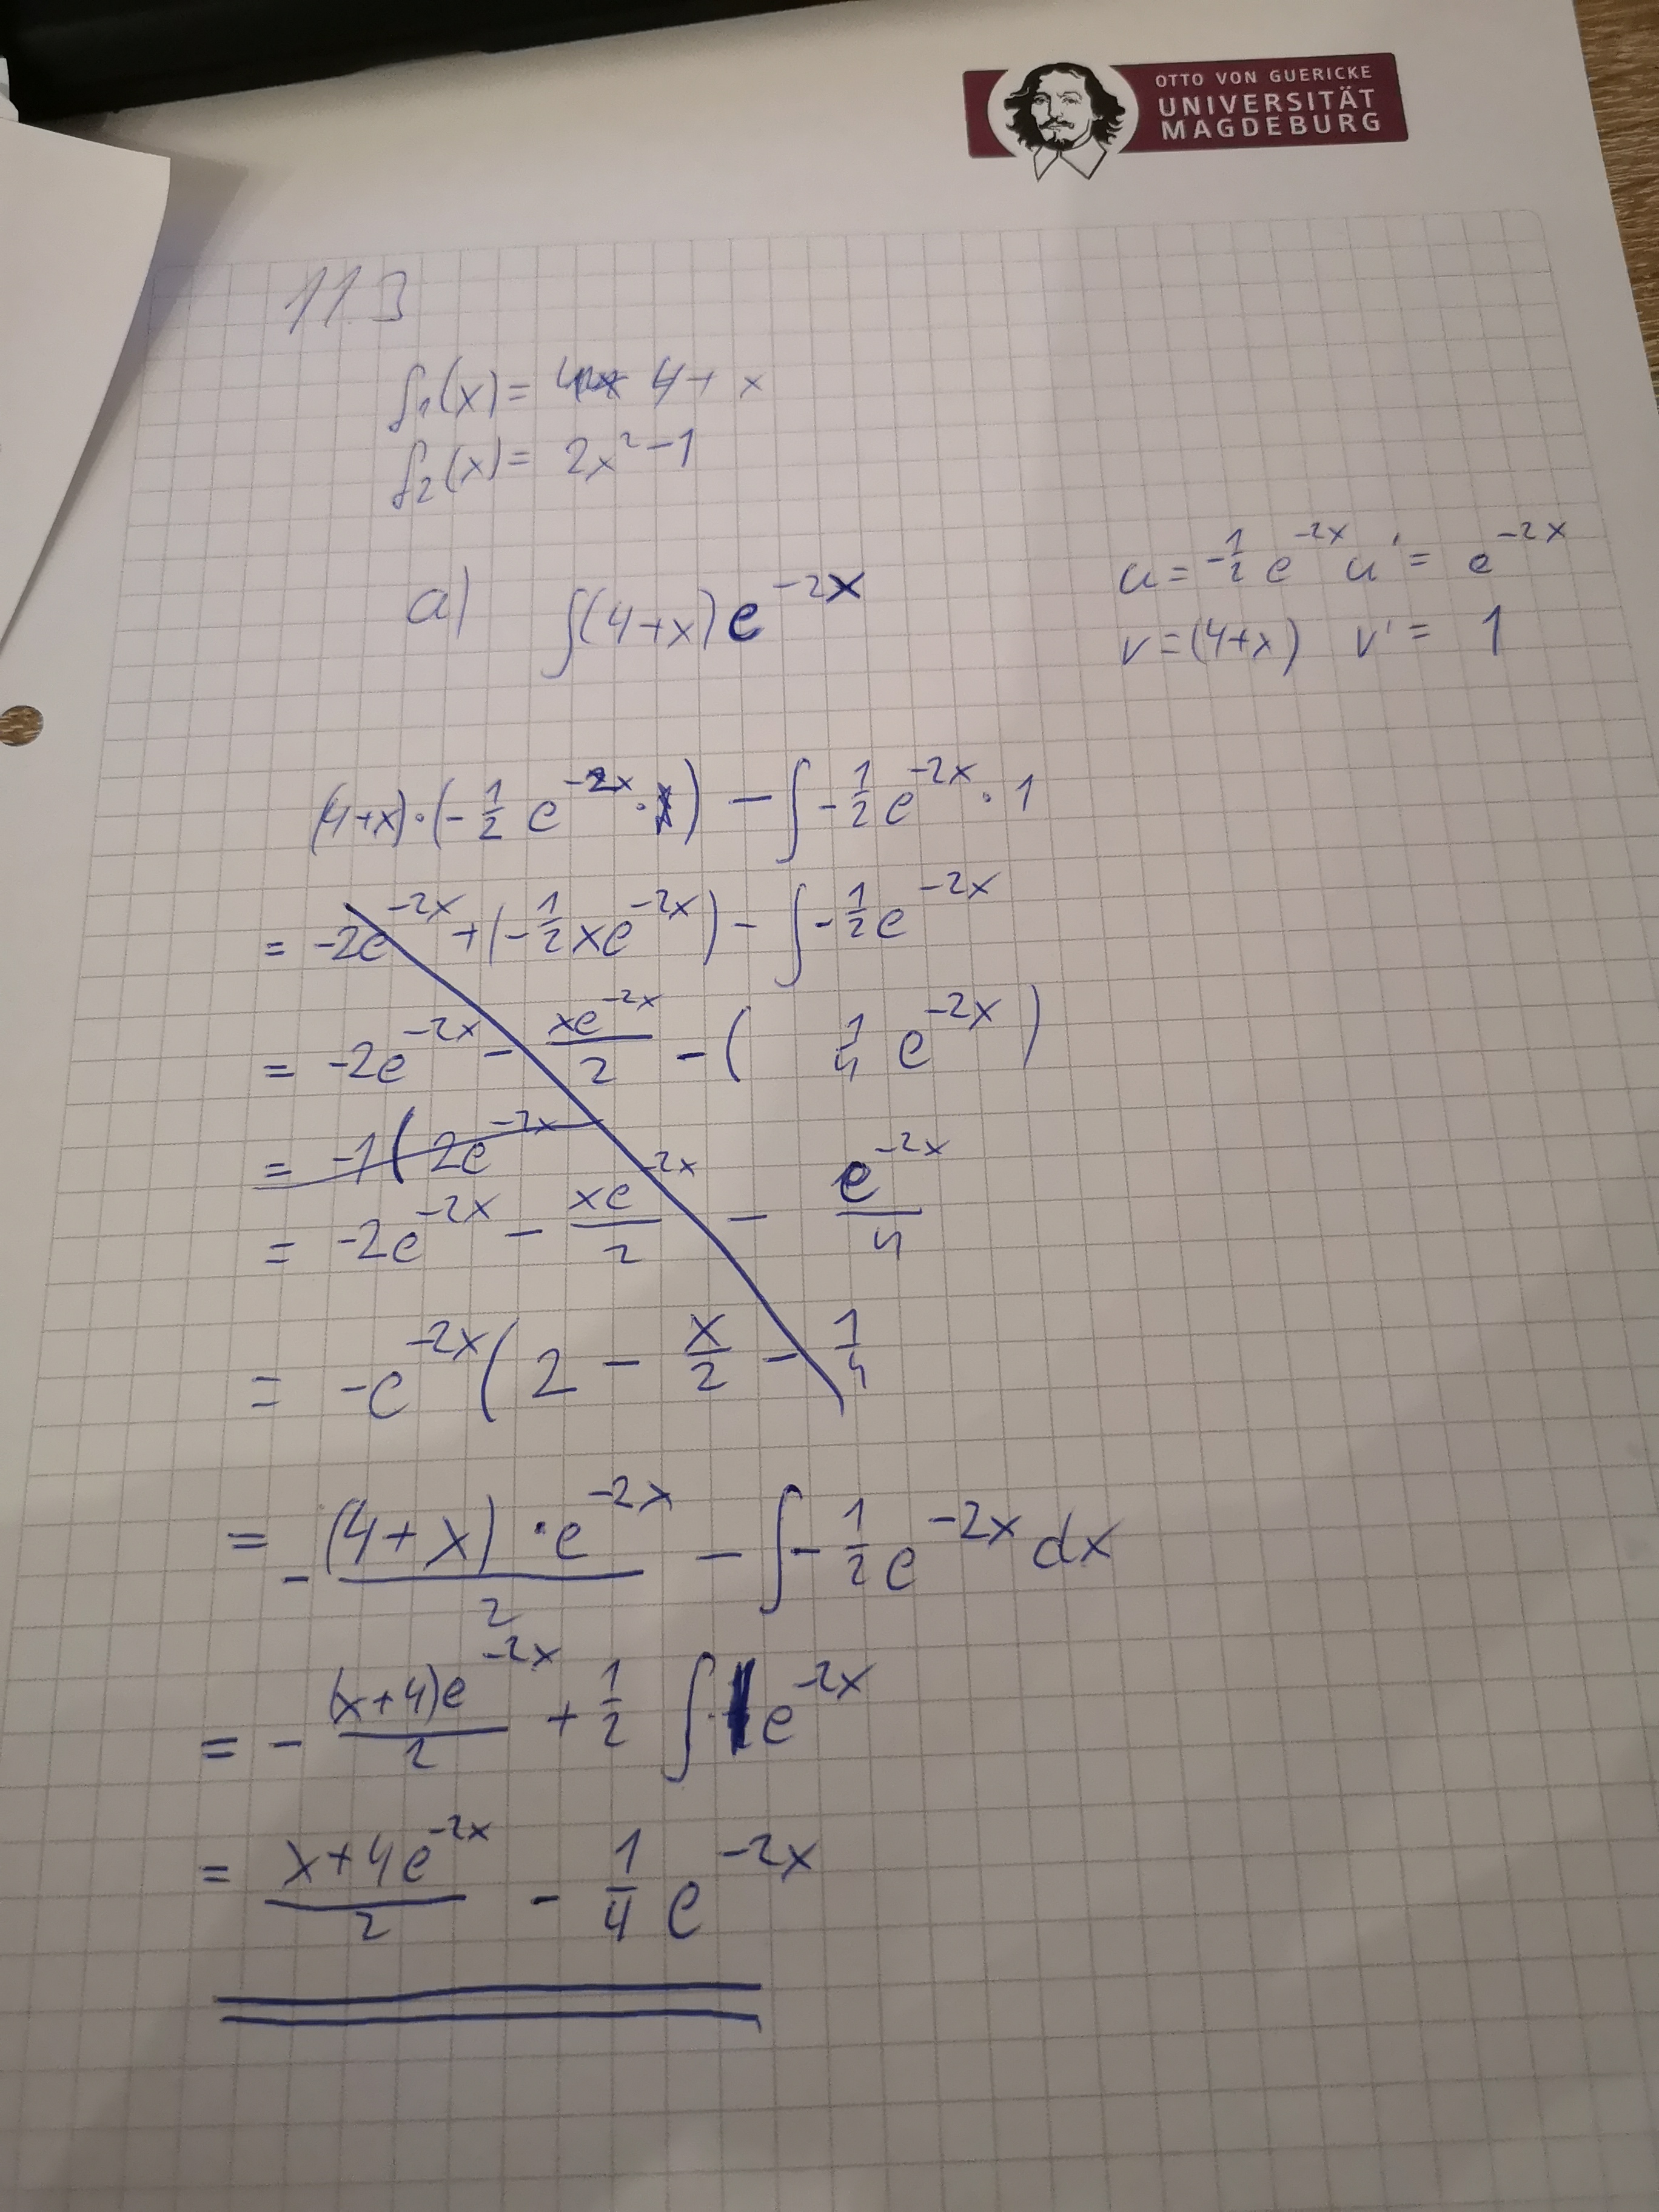 OTTO VON GUERICKE
UNIVERSITÄT
MAGDEBURG
11.3
f₁(x) = 4+x
f₂(x) = 2x²-1
a) ∫(4+x)e^(-2x)
u = -1/2 e^(-2x) u' = e^(-2x)
v = (4+x) v' = 1
(4+x)·(-1/2 e^(-2x)·) - ∫-1/2 e^(-2x)·1
= -2e^(-2x) + (-1/2 xe^(-2x)) - ∫-1/2 e^(-2x)
= -2e^(-2x) - xe^(-2x)/2 - ( 1/4 e^(-2x))
= -1(2e^(-2x)
= -2e^(-2x) - xe^(-2x)/2 - e^(-2x)/4
= -e^(-2x)(2 - x/2 - 1/4
= -(4+x)·e^(-2x)/2 - ∫-1/2 e^(-2x) dx
= -(x+4)e^(-2x)/2 + 1/2 ∫e^(-2x)
= x+4e^(-2x)/2 - 1/4 e^(-2x)